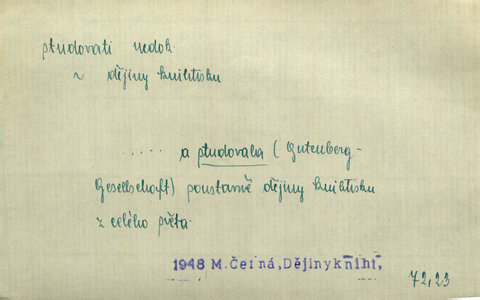 studovati nedok
~ dějiny knihtisku
..... a studovala (Gutenberg-
Gesellschaft) poustavně dějiny knihtisku
z celého světa.
1948 M.Černá,Dějiny kniht,
72,23